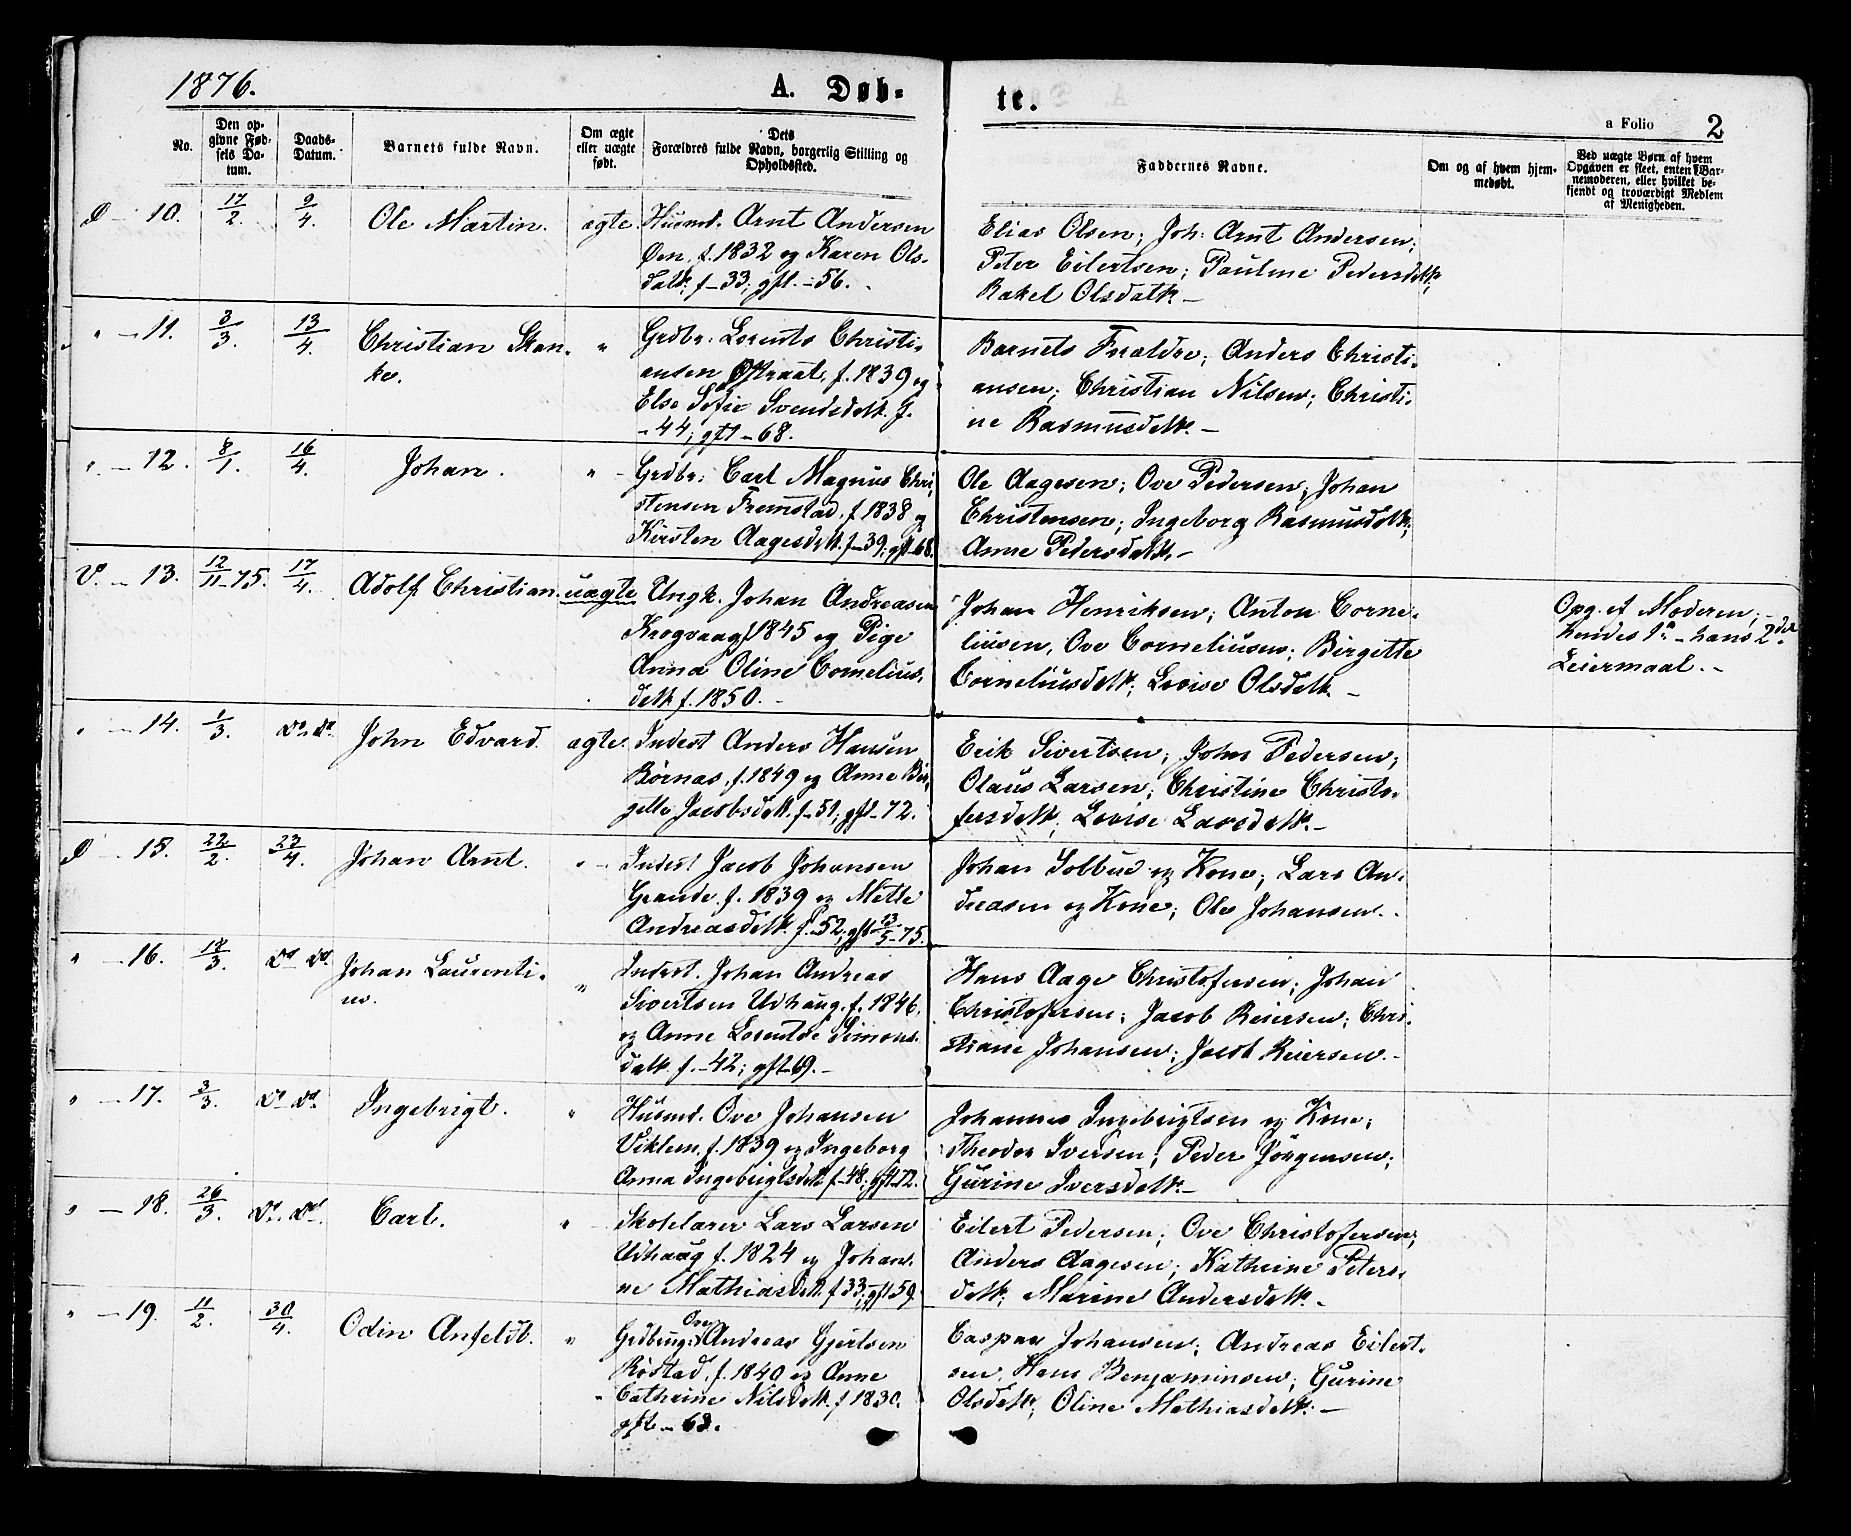 1876.
A. Døb-
te.
a Folio 2
No.
Den op-
givne Fød-
sels Da-
tum.
Daabs-
Datum.
Barnets fulde Navn.
Om ægte
eller uægte
født.
Dets
Forældres fulde Navn, borgerlig Stilling og
Opholdssted.
Faddernes Navne.
Om og af hvem hjem-
medøbt.
Ved uægte Børn af hvem
Opgaven er skeet, enten Bar-
nemoderen, eller hvilket be-
kjendt og troværdigt Medlem
af Menigheden.
10. 17/2. 9/4. Ole Martin. ægte.
Husmd. Arnt Andersen
Øen, f. 1832 og Karen Ols-
datt. f - 33; gft. - 56.
Elias Olsen; Joh. Arnt Andersen;
Peter Eilertsen; Pauline Pedersdatt;
Rakel Olsdatt. -
" - 11. 3/3. 13/4. Christian Skan-
ke. "
Grdbr. Lorents Christi-
ansen Østraat, f. 1839 og
Else Sofie Svendsdatt. f.
- 44; gft - 68.
Barnets Forældre; Anders Christi-
ansen; Christian Nilsen; Christi-
ne Rasmusdatt. -
" - 12. 8/1. 16/4. Johan. "
Grdbr. Carl Magnus Chri-
stensen Fremstad, f. 1838 og
Kirsten Aagesdatt. f - 39; gft - 68.
Ole Aagesen; Ove Pedersen; Johan
Christensen; Ingeborg Rasmusdatt;
Anne Pedersdatt. -
V. - 13. 12/11 - 75. 17/4. Adolf Christian. uægte
Ungk. Johan Andreasen
Krogvaag f. 1845 og Pige
Anna Oline Cornelius-
datt f. 1850. -
Johan Henriksen; Anton Corne-
liusen, Ove Corneliusen; Birgitte
Corneliusdatt; Lovise Olsdatt. -
Opg. af Moderen;
hendes 1ste - hans 2det
Leiermaal. -
" - 14. 1/3. do. do. John Edvard. ægte.
Inderst Anders Hansen
Børnas, f. 1849 og Anne Bir-
gitte Jacobsdatt. f - 51; gft - 72.
Erik Sivertsen; Johs Pedersen;
Olaus Larsen; Christine Christo-
fersdatt; Lovise Larsdatt. -
15. 22/2. 23/4. Johan Arnt. "
Inderst Jacob Johansen
Grande, f. 1839 og Mette
Andreasdatt. f. - 52; gft 13/5 - 75.
Johan Solbue og Kone; Lars An-
dreasen og Kone; Ole Johansen.
" - 16. 18/3. do do. Johan Laurenti-
us. "
Inderst. Johan Andreas
Sivertsen Udhaug, f. 1846,
og Anne Lorentse Simons-
datt. f. - 42; gft - 69. -
Hans Aage Christofersen; Johan
Christofersen; Jacob Reiersen; Chri-
stiane Johansen; Jacob Reiersen. -
" - 17. 3/3. do do. Ingebrigt. "
Husmd. Ove Johansen
Viklem, f. 1839 og Ingeborg
Anna Ingebrigtsdatt f - 48; gft - 72.
Johannes Ingebrigtsen og Kone;
Theodor Iversen; Peder Jørgensen;
Gurine Iversdatt. -
" - 18. 26/3. do. do. Carl. "
Skolelærer Lars Larsen
Udhaug f. 1824 og Johan-
ne Mathiasdatt f 33; gft 59.
Eilert Pedersen; Ove Christofersen;
Anders Aagesen; Kathrine Peters-
datt; Marine Andersdatt. -
" - 19. 11/2. 30/4. Odin Anfeldt. "
Ove
Andreas Gjertsen
Røstad, f. 1840 og Anne
Cathrine Nilsdatt. f 1830.
gft - 63.
Caspar Johansen; Andreas Eilert-
sen, Hans Benjaminsen; Gurine
Olsdatt; Oline Mathiasdatt. -